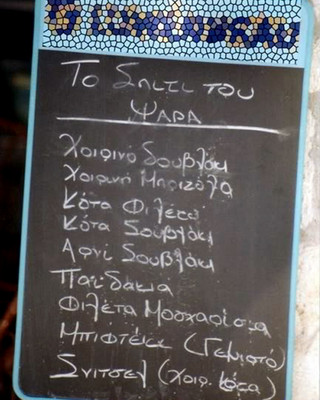 Το Σπιτι του
ΨΑΡΑ
Χοιρινό Σουβλάκι
Χοιρινή Μπριζόλα
Κότα Φιλέτο
Κότα Σουβλάκι
Αρνί Σουβλάκι
Παϊδακια
Φιλέτα Μοσχαρίσια
Μπιφτέκι (Γεμιστό)
Σνιτσελ (χοιρ. κότα)